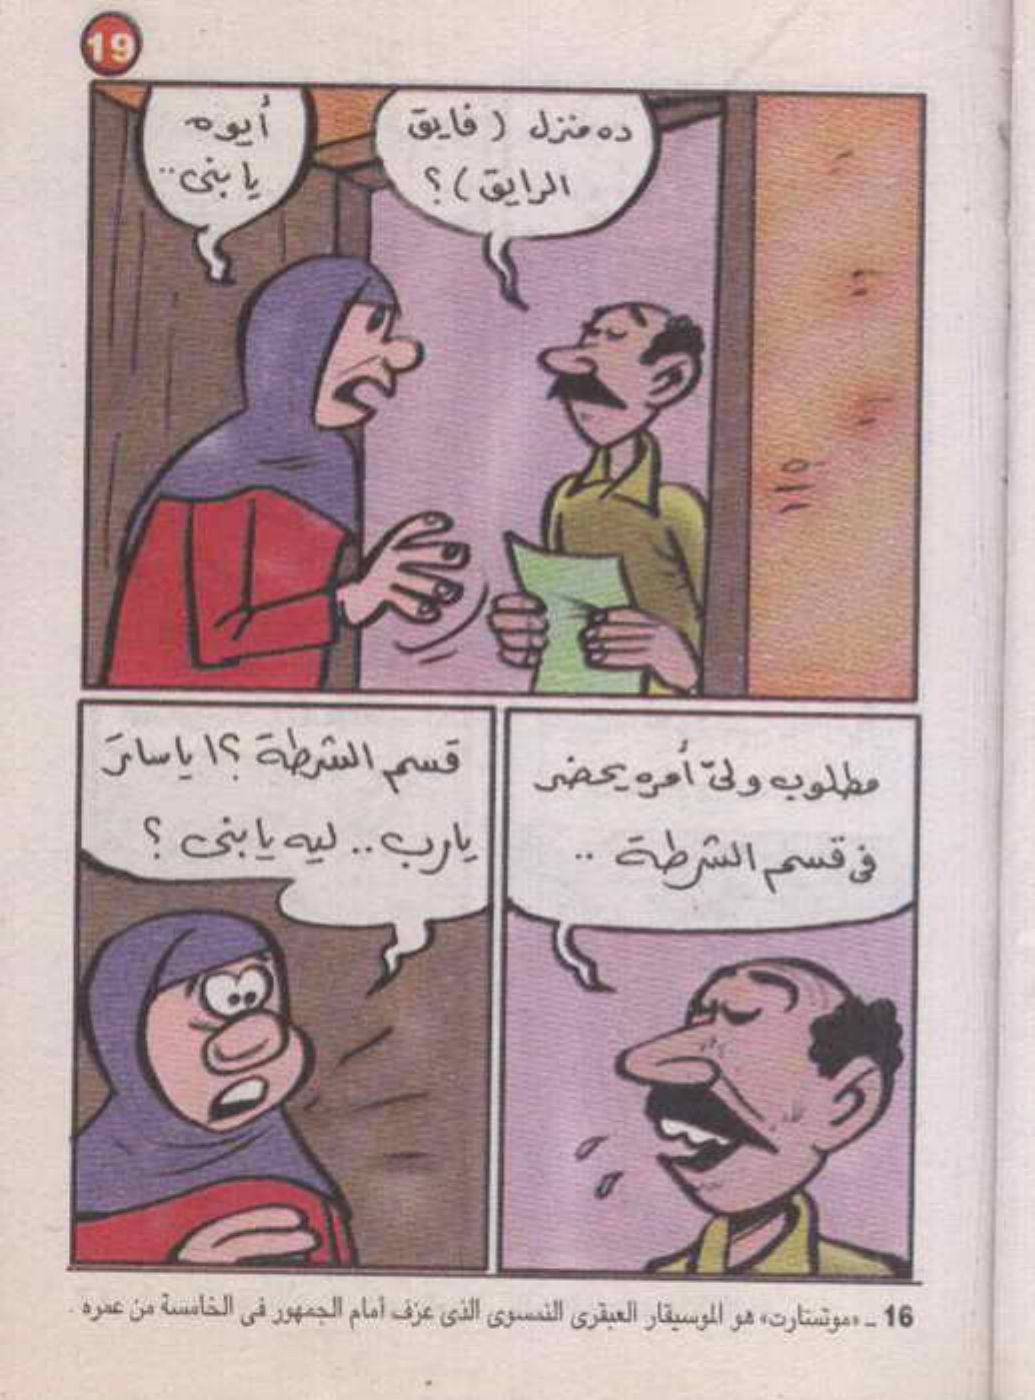 19
ده منزل (فايق
الرايق)؟
أيوه
يا بنى..
مطلوب ولىّ أمره يحضر
فى قسم الشرطة ..
قسم الشرطة ؟! يا ساتر
يارب.. ليه يا بنى ؟
16 ــ «موتسارت» هو الموسيقار العبقرى النمسوى الذى عزف أمام الجمهور فى الخامسة من عمره .